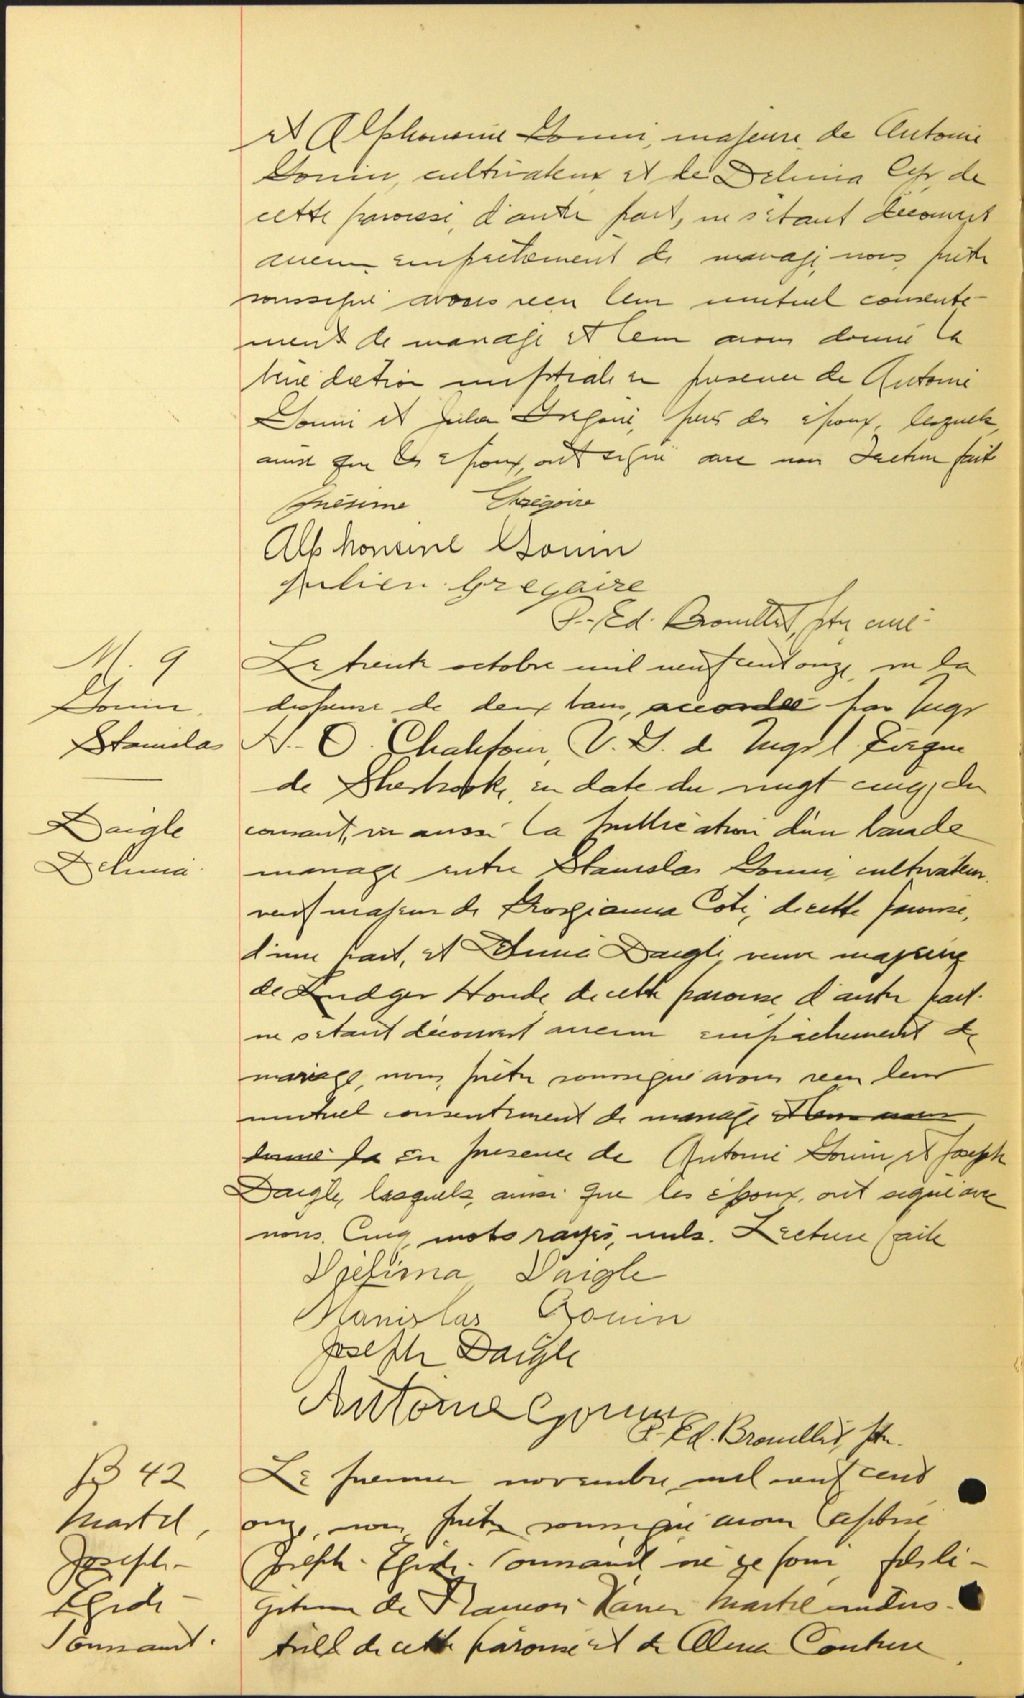 et Alphonsine Gouin, majeure de Antoine
Gouin, cultivateur et de Delima Cyr, de
cette paroisse, d'autre part, ne s'étant découvert
aucun empêchement de mariage, nous, prêtre
soussigné avons reçu leur mutuel consente-
ment de mariage et leur avons donné la
bénédiction nuptiale en présence de Antoine
Gouin et Julien Grégoire, pères des époux, lesquels,
ainsi que les époux, ont signé avec nous Lecture faite
Onésime Grégoire
Alphonsine Gouin
Julien Gregoire
P.-Ed. Brouillet, ptre curé-
M. 9
Gouin,
Stanislas
Daigle
Delima
Le trente octobre mil neuf cent onze, vu la
dispense de deux bans, accordée par Mgr
H.-O. Chalifoux, V.G. de Mgr l'Évêque
de Sherbrooke, en date du vingt cinq du
courant, vu aussi la publication d'un ban de
mariage entre Stanislas Gouin, cultivateur,
veuf majeur de Georgianna Coté, de cette paroisse,
d'une part, et Delima Daigle, veuve majeure
de Ludger Houde de cette paroisse d'autre part.
ne s'étant découvert aucun empêchement de
mariage, nous, prêtre soussigné avons reçu leur
mutuel consentement de mariage et leur avons
donné la en présence de Antoine Gouin et Joseph
Daigle, lesquels, ainsi que les époux, ont signé avec
nous. Cinq mots rayés, nuls. Lecture faite
Délima Daigle
Stanislas Gouin
Joseph Daigle
Antoine Gouin
P.-Ed. Brouillet, ptre.
B 42
Martel,
Joseph-
Egide-
Toussaint.
Le premier novembre, mil neuf cent
onze, nous, prêtre soussigné avons baptisé
Joseph-Egide-Toussaint né ce jour, fils lé-
gitime de François-Xavier Martel indus-
triel de cette paroisse et de Alma Couture